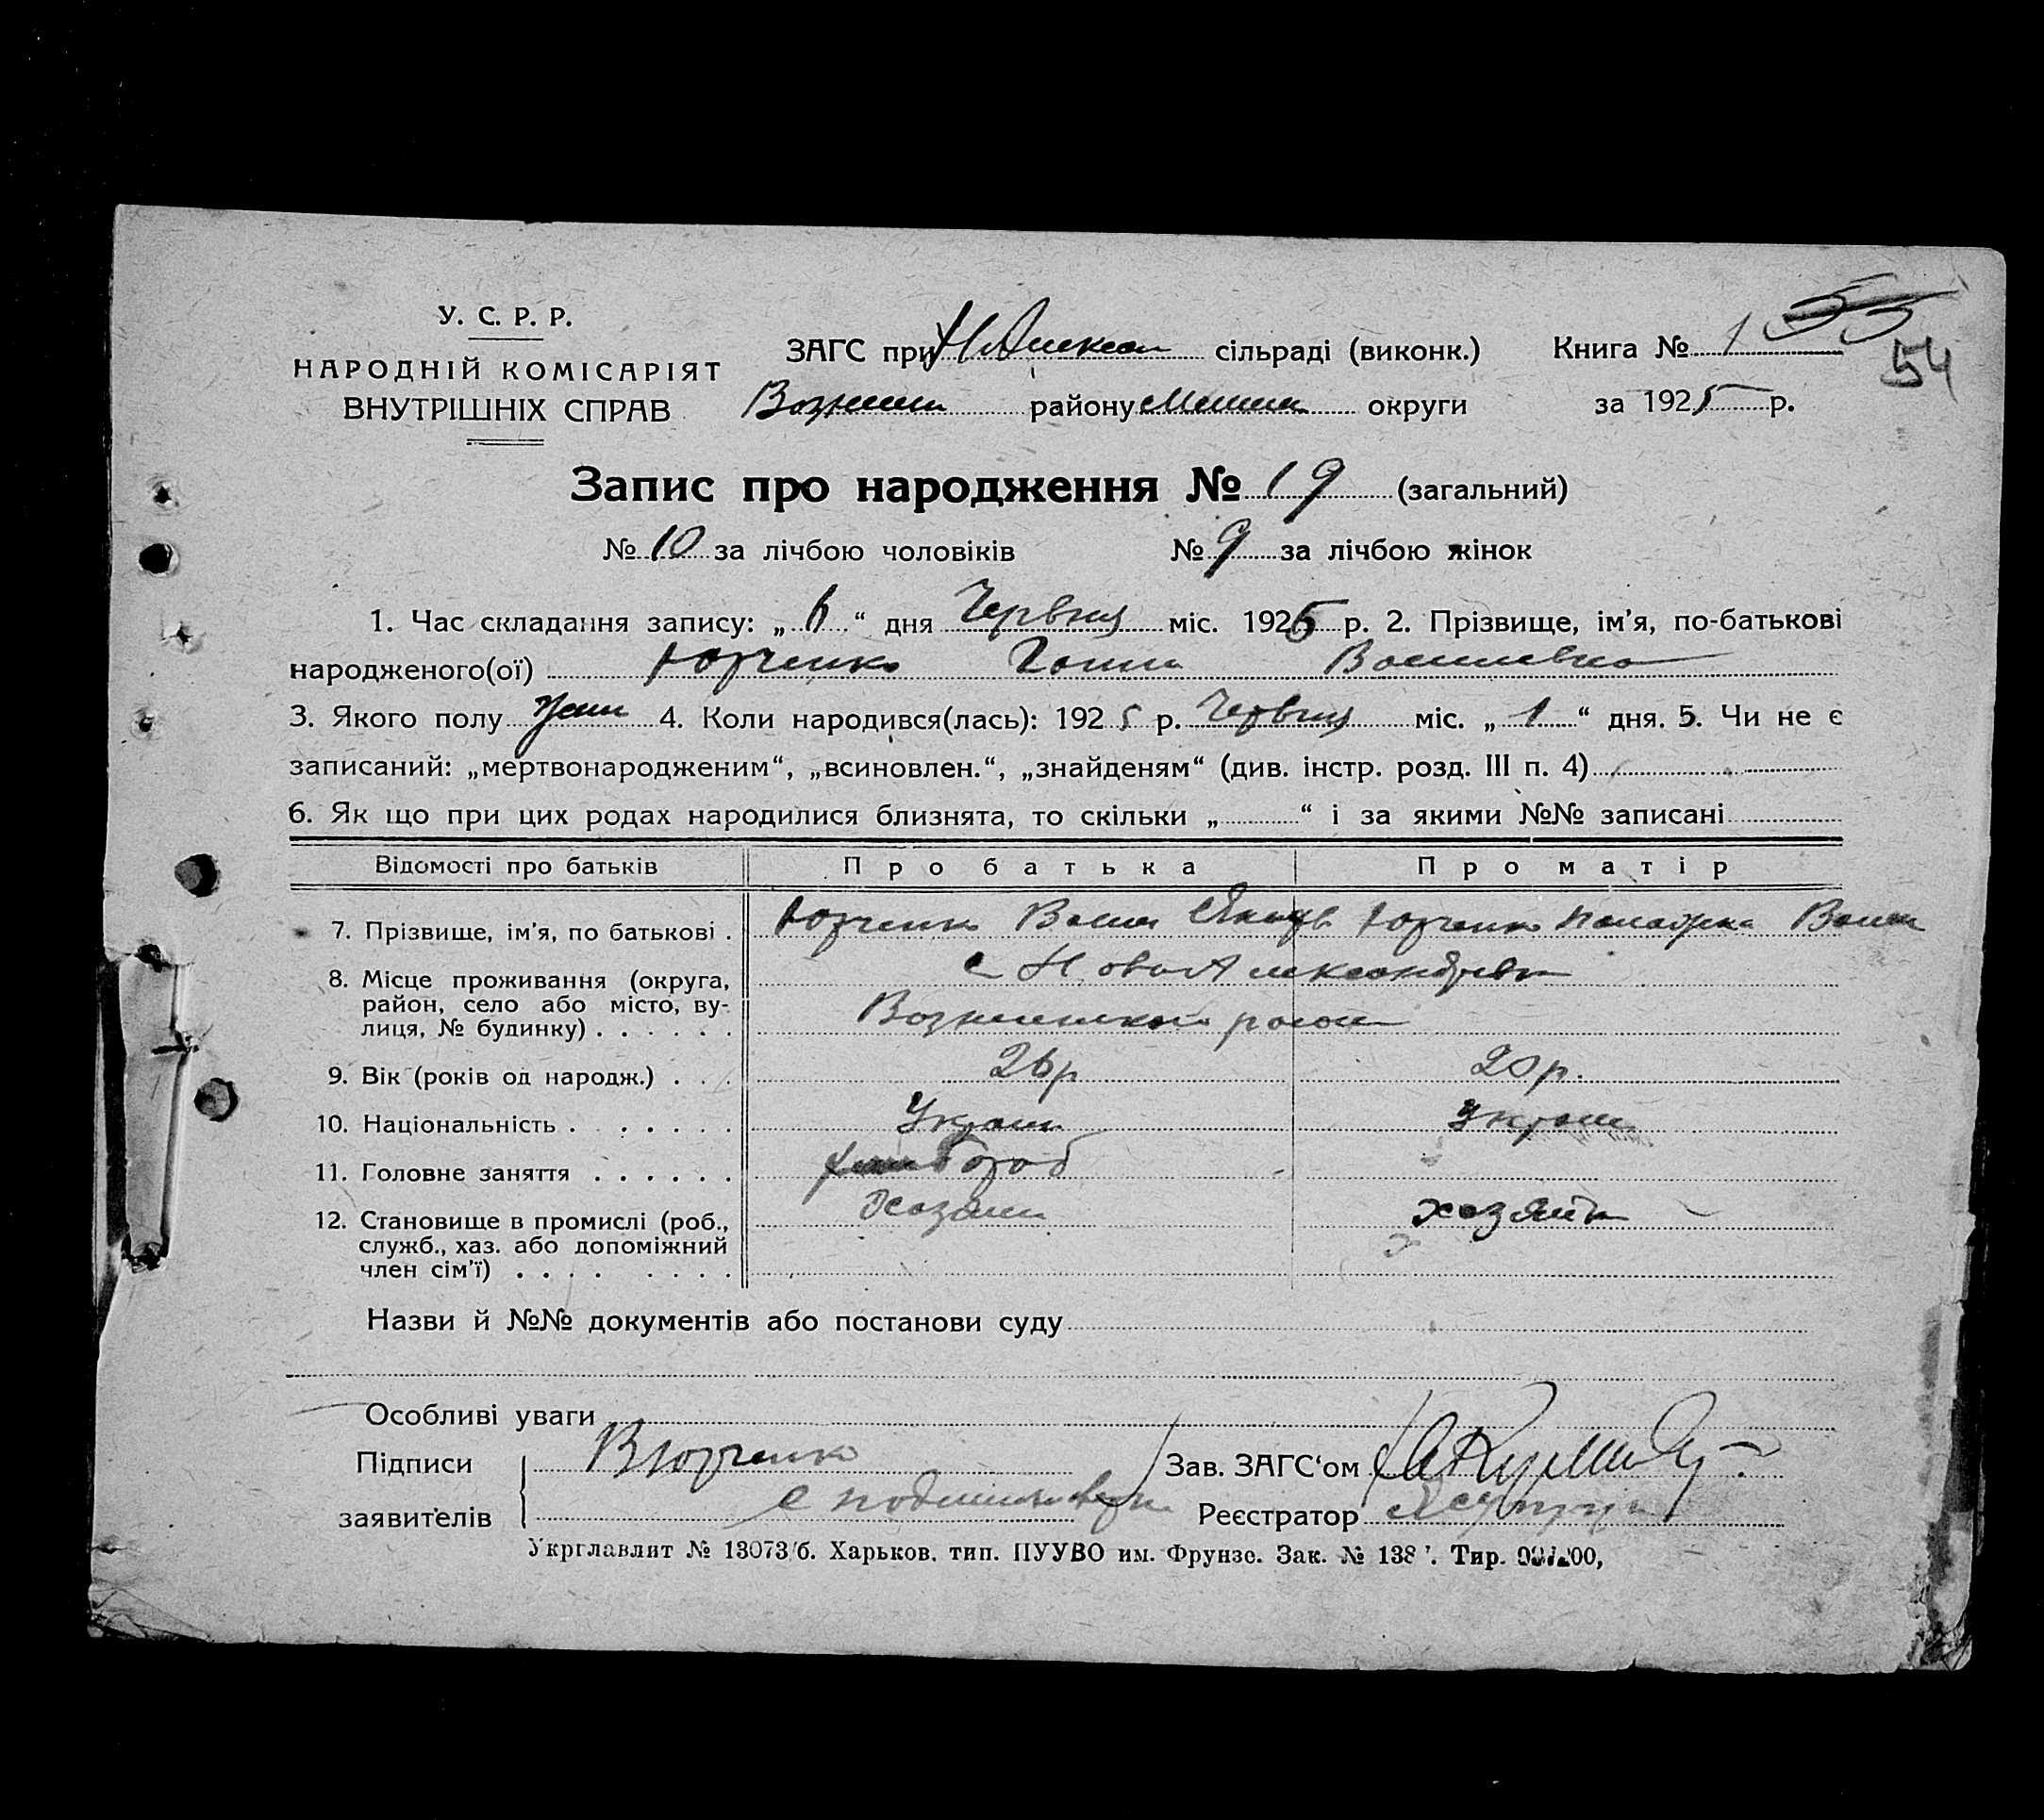 У. С. Р. Р.
НАРОДНІЙ КОМІСАРІЯТ
ВНУТРІШНІХ СПРАВ
ЗАГС при Н Алексан сільраді (виконк.)
района районy округи
Книга № 1 55
54
за 1925 р.
Запис про народження № 19 (загальний)
№ 10 за лічбою чоловіків № 9 за лічбою жінок
1. Час складання запису: „ 6 “ дня Червня міс. 1925 р. 2. Прізвище, ім'я, по-батькові
народженого(ої) Юрченко Ганна Василевна
3. Якого полу жен 4. Коли народився(лась): 1925 р. Червня міс. „ 1 “ дня. 5. Чи не є
записаний: „мертвонародженим“, „всиновлен.“, „знайденям“ (див. інстр. розд. III п. 4)
6. Як що при цих родах народилися близнята, то скільки „ “ і за якими №№ записані
Відомості про батьків Про батька Про матір
7. Прізвище, ім'я, по батькові . Юрченко Васил Яков Юрченко Палажка Васил
8. Місце проживання (округа, с Ново Александрівка
район, село або місто, ву-
лиця, № будинку) . . . . . . Вознесенского район
9. Вік (років од народж.) . . . 26 р 20 р.
10. Національність . . . . . . . Украин Украин
11. Головне заняття . . . . . . хлібороб
12. Становище в промислі (роб., Хозяин хозяйка
служб., хаз. або допоміжний
член сім'ї) . . . . . . . .
Назви й №№ документів або постанови суду
Особливі уваги
Підписи В Юрченко Зав. ЗАГС‘ом
заявителів Реєстратор
Укрглавлит № 13073/б. Харьков. тип. ПУУВО им. Фрунзе. Зак. № 138 Тир.